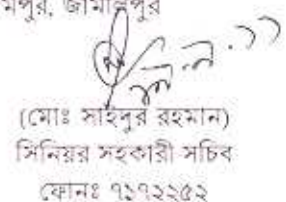 মপুর, জামালপুর
(মোঃ সাইদুর রহমান)
সিনিয়র সহকারী সচিব
ফোনঃ ৭১৭২২৫২